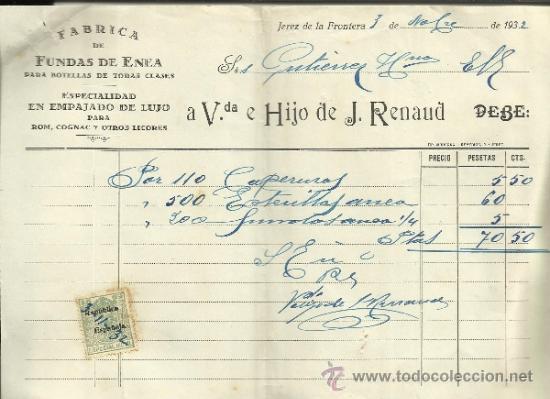 FABRICA
DE
FUNDAS DE ENEA
PARA BOTELLAS DE TODAS CLASES
ESPECIALIDAD
EN EMPAJADO DE LUJO
PARA
ROM, COGNAC Y OTROS LICORES
Jerez de la Frontera 3 de Nobre de 1932
Srs Gutiérrez Hnos
a V.da e Hijo de J. Renaud DEBE:
PRECIO PESETAS CTS.
Por 110 Caperuzas 5 50
" 500 Esterillas anea 60
" 200 anea 1/4 5
Ptas 70 50
República
Española
www.todocoleccion.net